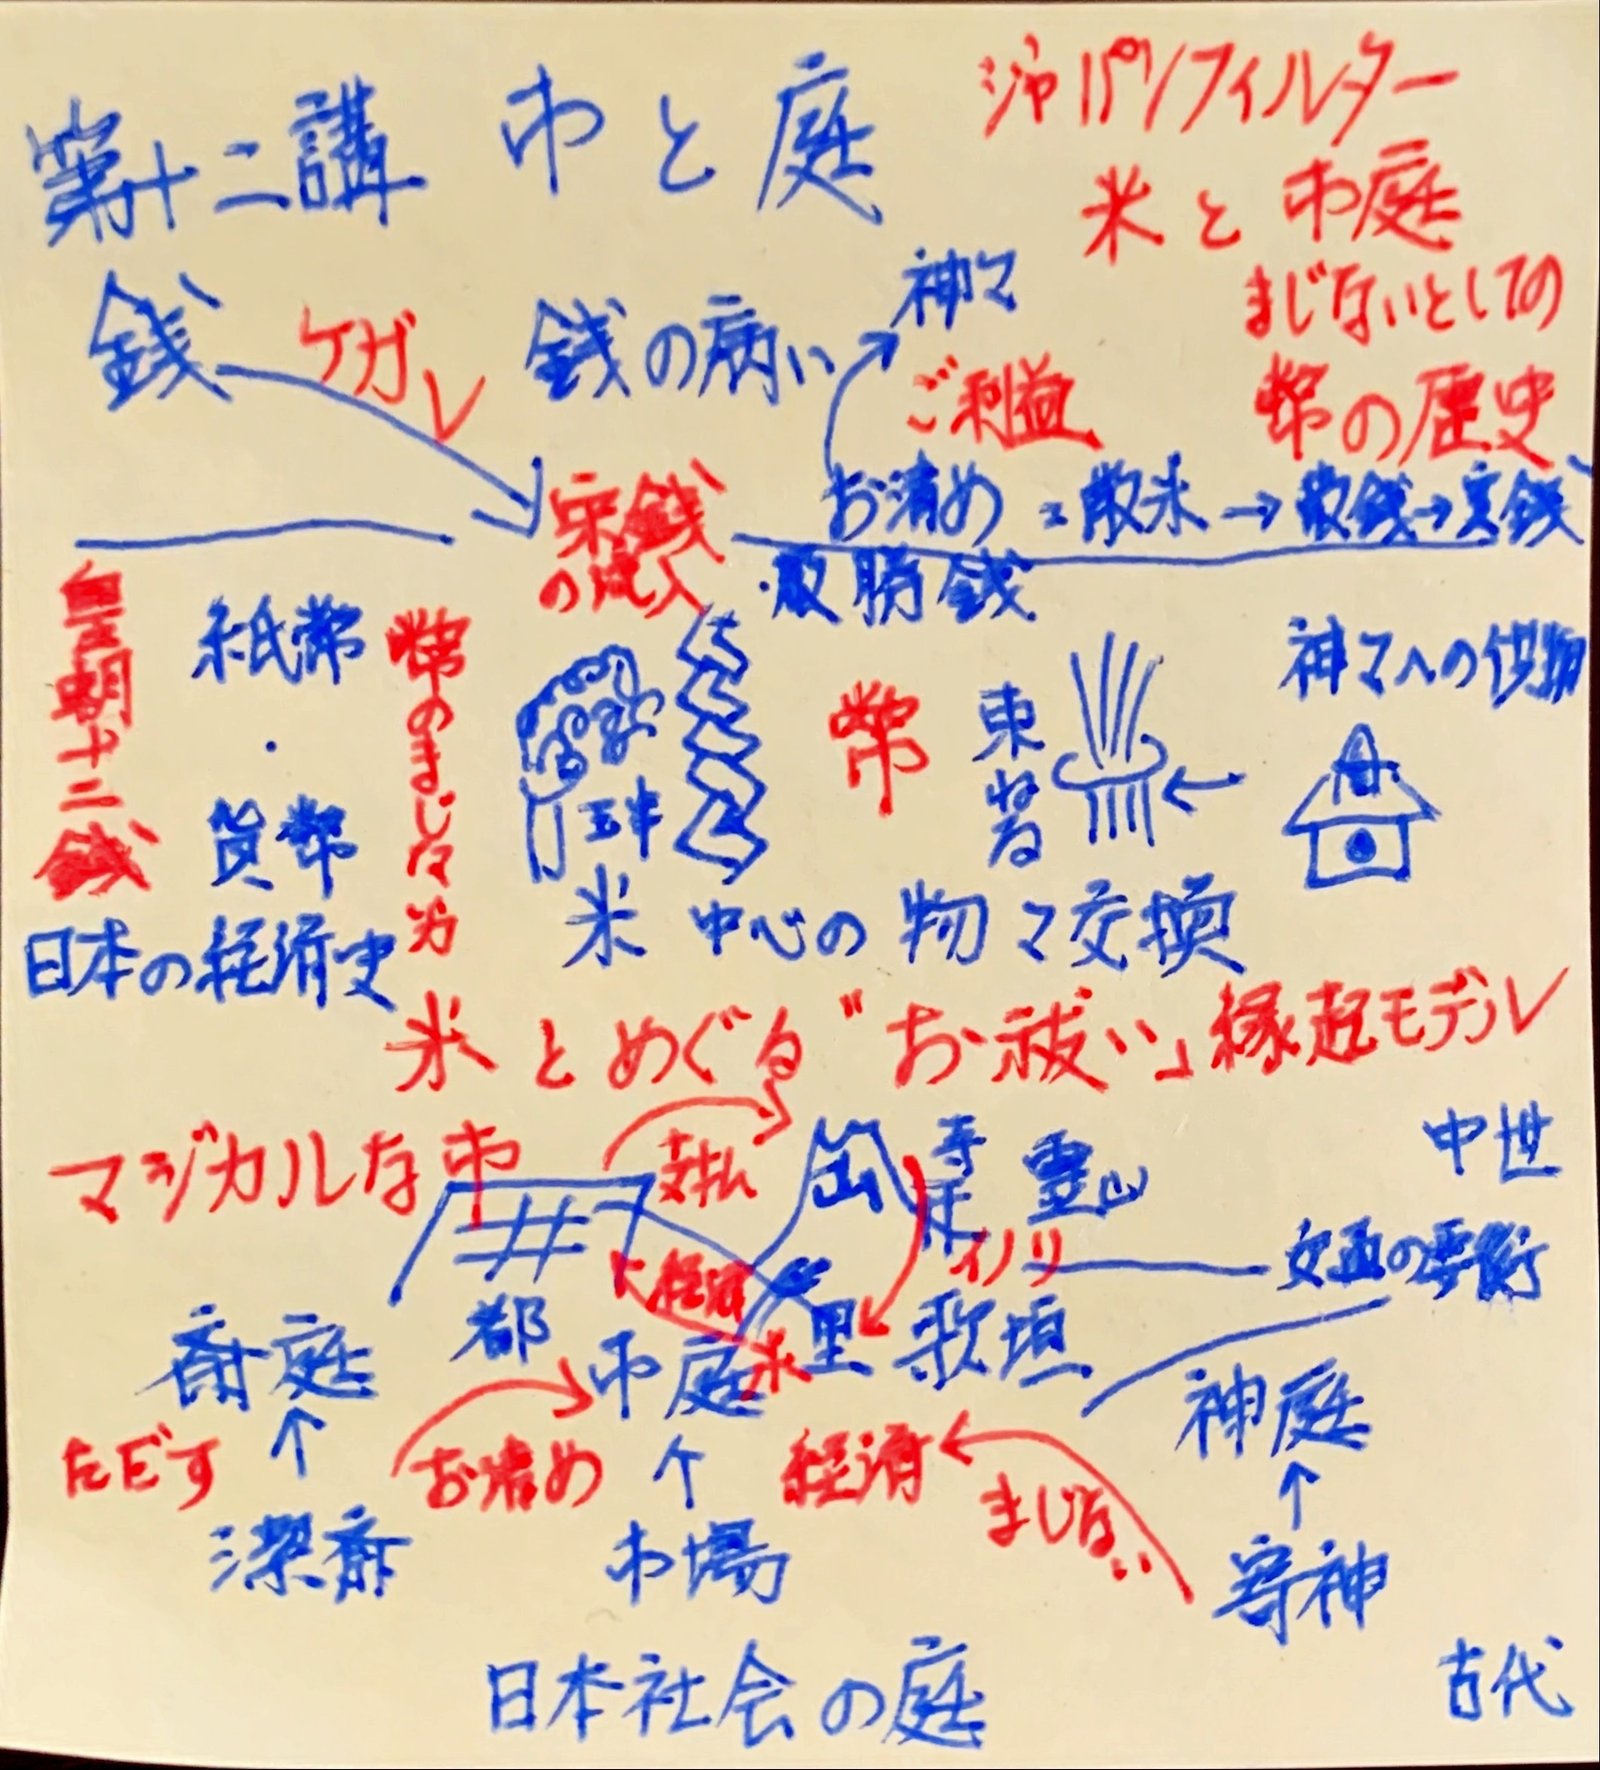 第十二講 市と庭
ジャパンフィルター
米と市庭
まじないとしての
幣の歴史
銭
ケガレ
銭の病い
神々
ご利益
お清め
散米→散銭→賽銭
宋銭
の流入
取勝銭
皇朝十二銭
紙幣
・
貨幣
日本の経済史
幣のまじない
幣
束ねる
神々への供物
米中心の物々交換
米とめぐる“お祓い」縁起モデル
マジカルな市
支払
山
霊山
中世
イノリ
経済
都
里
歌垣
米
斎庭
市庭
神庭
ただす
お清め
経済
まじない
潔斎
市場
寄神
日本社会の庭
古代